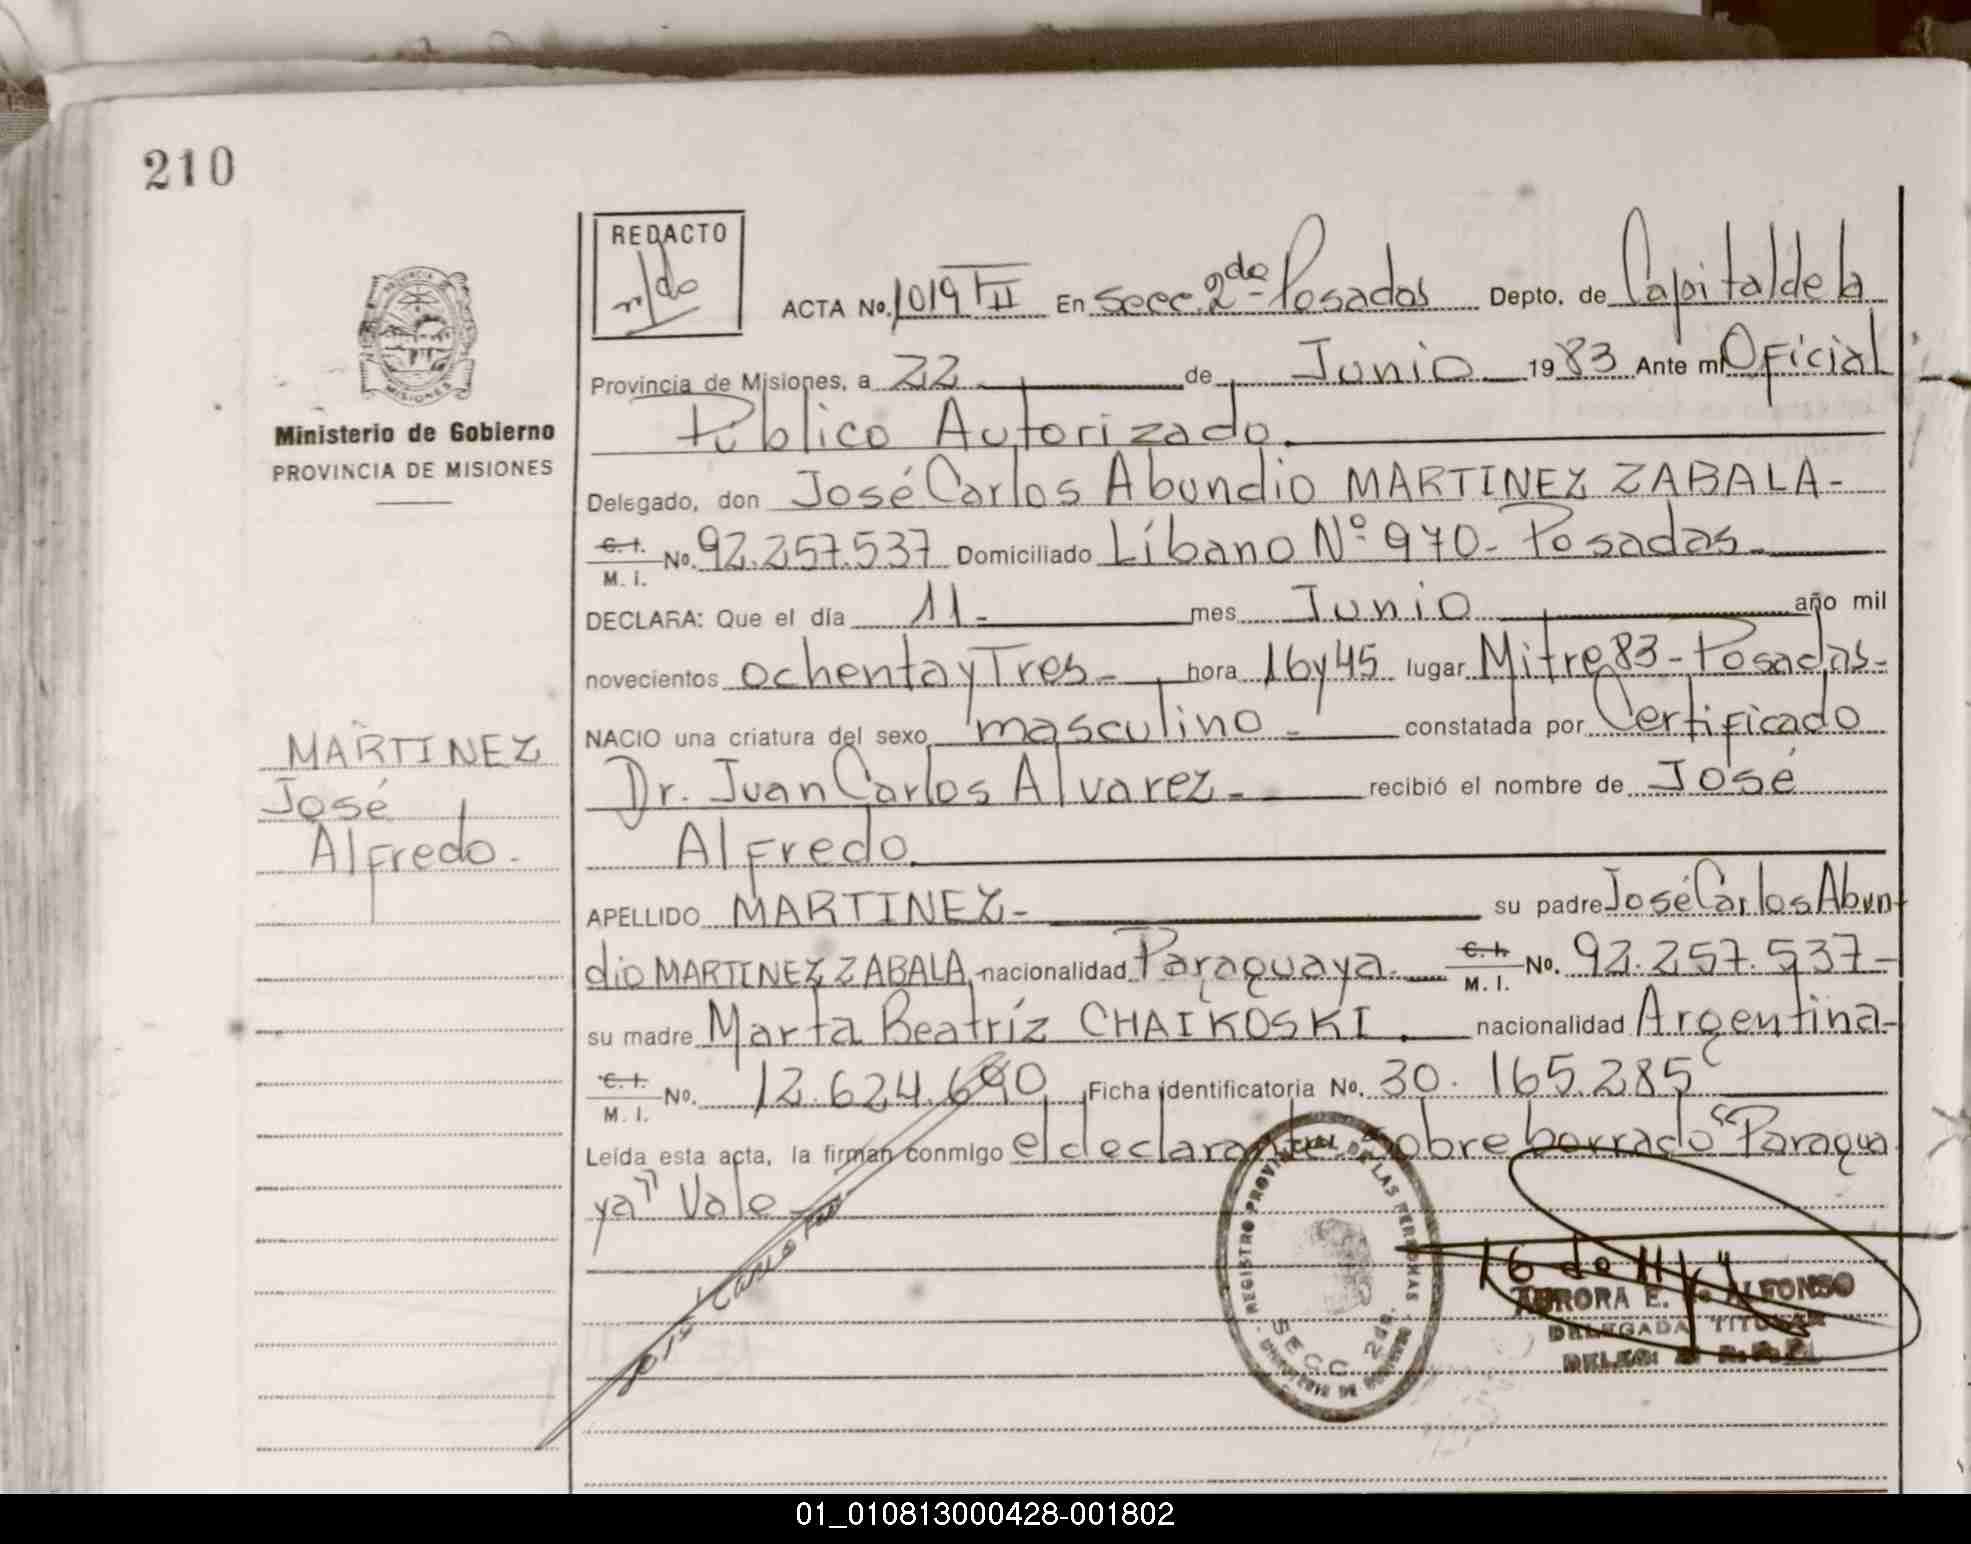 210
REDACTO
ACTA No. 1019 TII En Secc. 2da Posadas Depto. de Capital de la
Provincia de Misiones, a 22 de Junio 1983 Ante mi Oficial
Público Autorizado.
Ministerio de Gobierno
PROVINCIA DE MISIONES
Delegado, don José Carlos Abundio MARTINEZ ZABALA-
C. I. M. I. No. 92.257.537 Domiciliado Líbano Nº 970- Posadas-
DECLARA: Que el día 11- mes Junio año mil
novecientos ochenta y Tres- hora 16 y 45 lugar Mitre 83- Posadas-
NACIO una criatura del sexo masculino- constatada por Certificado
Dr. Juan Carlos Alvarez- recibió el nombre de José
Alfredo.
MARTINEZ
José
Alfredo.
APELLIDO MARTINEZ- su padre José Carlos Abun-
dio MARTINEZ ZABALA nacionalidad Paraguaya. C. I. M. I. No. 92.257.537-
su madre Marta Beatríz CHAIKOSKI. nacionalidad Argentina-
C. I. M. I. No. 12.624.690 Ficha identificatoria No. 30.165.285
Leída esta acta, la firman conmigo el declarante. Sobre borrado "Paragua
ya" Vale-
REGISTRO PROVINCIAL DE LAS PERSONAS
SECC 2da.
MINISTERIO DE GOBIERNO
AURORA E. ALFONSO
DELEGADA TITULAR
01_010813000428-001802